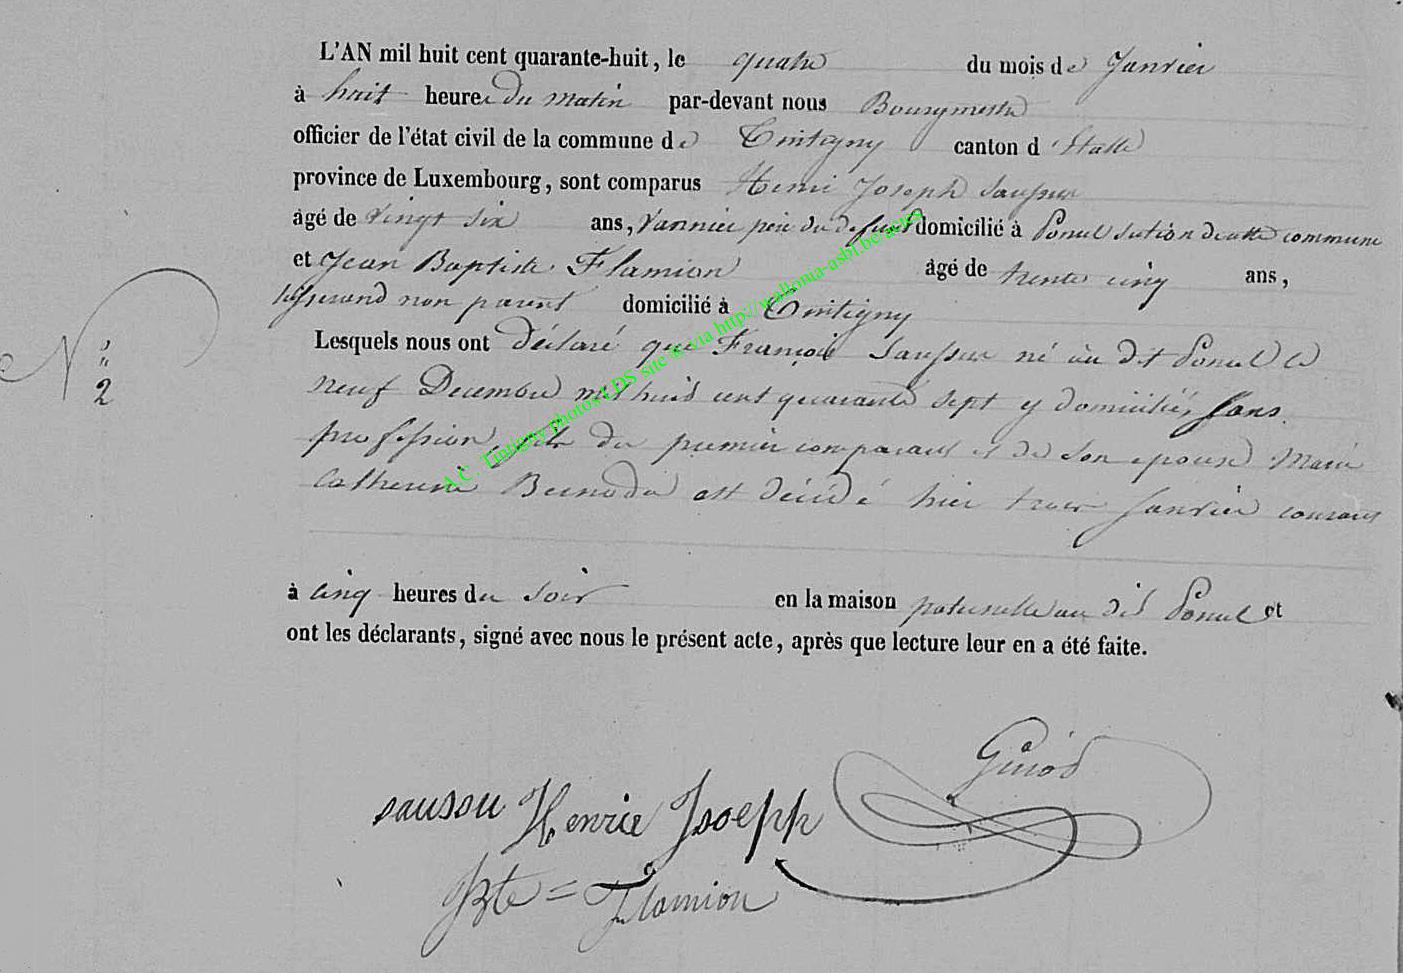 L'AN mil huit cent quarante-huit, le quatre du mois de Janvier
à huit heures du matin par-devant nous Bourgmestre
officier de l'état civil de la commune de Tintigny canton d'Etalle
province de Luxembourg, sont comparus Henri Joseph
âgé de vingt six ans, Vannier père du défunt domicilié à section de cette commune
et Jean Baptiste Flamion âgé de trente cinq ans,
tisserand non parent domicilié à Tintigny
Lesquels nous ont déclaré que François né au dit le
N° 2
neuf Decembre mil huit cent quarante sept y domicilié, sans
profession, fils du premier comparant et de son epouse Marie
Catherine est décédé hier trois Janvier courant
à cinq heures du soir en la maison paternelle au dit et
ont les déclarants, signé avec nous le présent acte, après que lecture leur en a été faite.
Henrie Jsoepph
Bte = Flamion
A.C. Tintigny photos LDS site & via http://walloma-asbl.be/actes